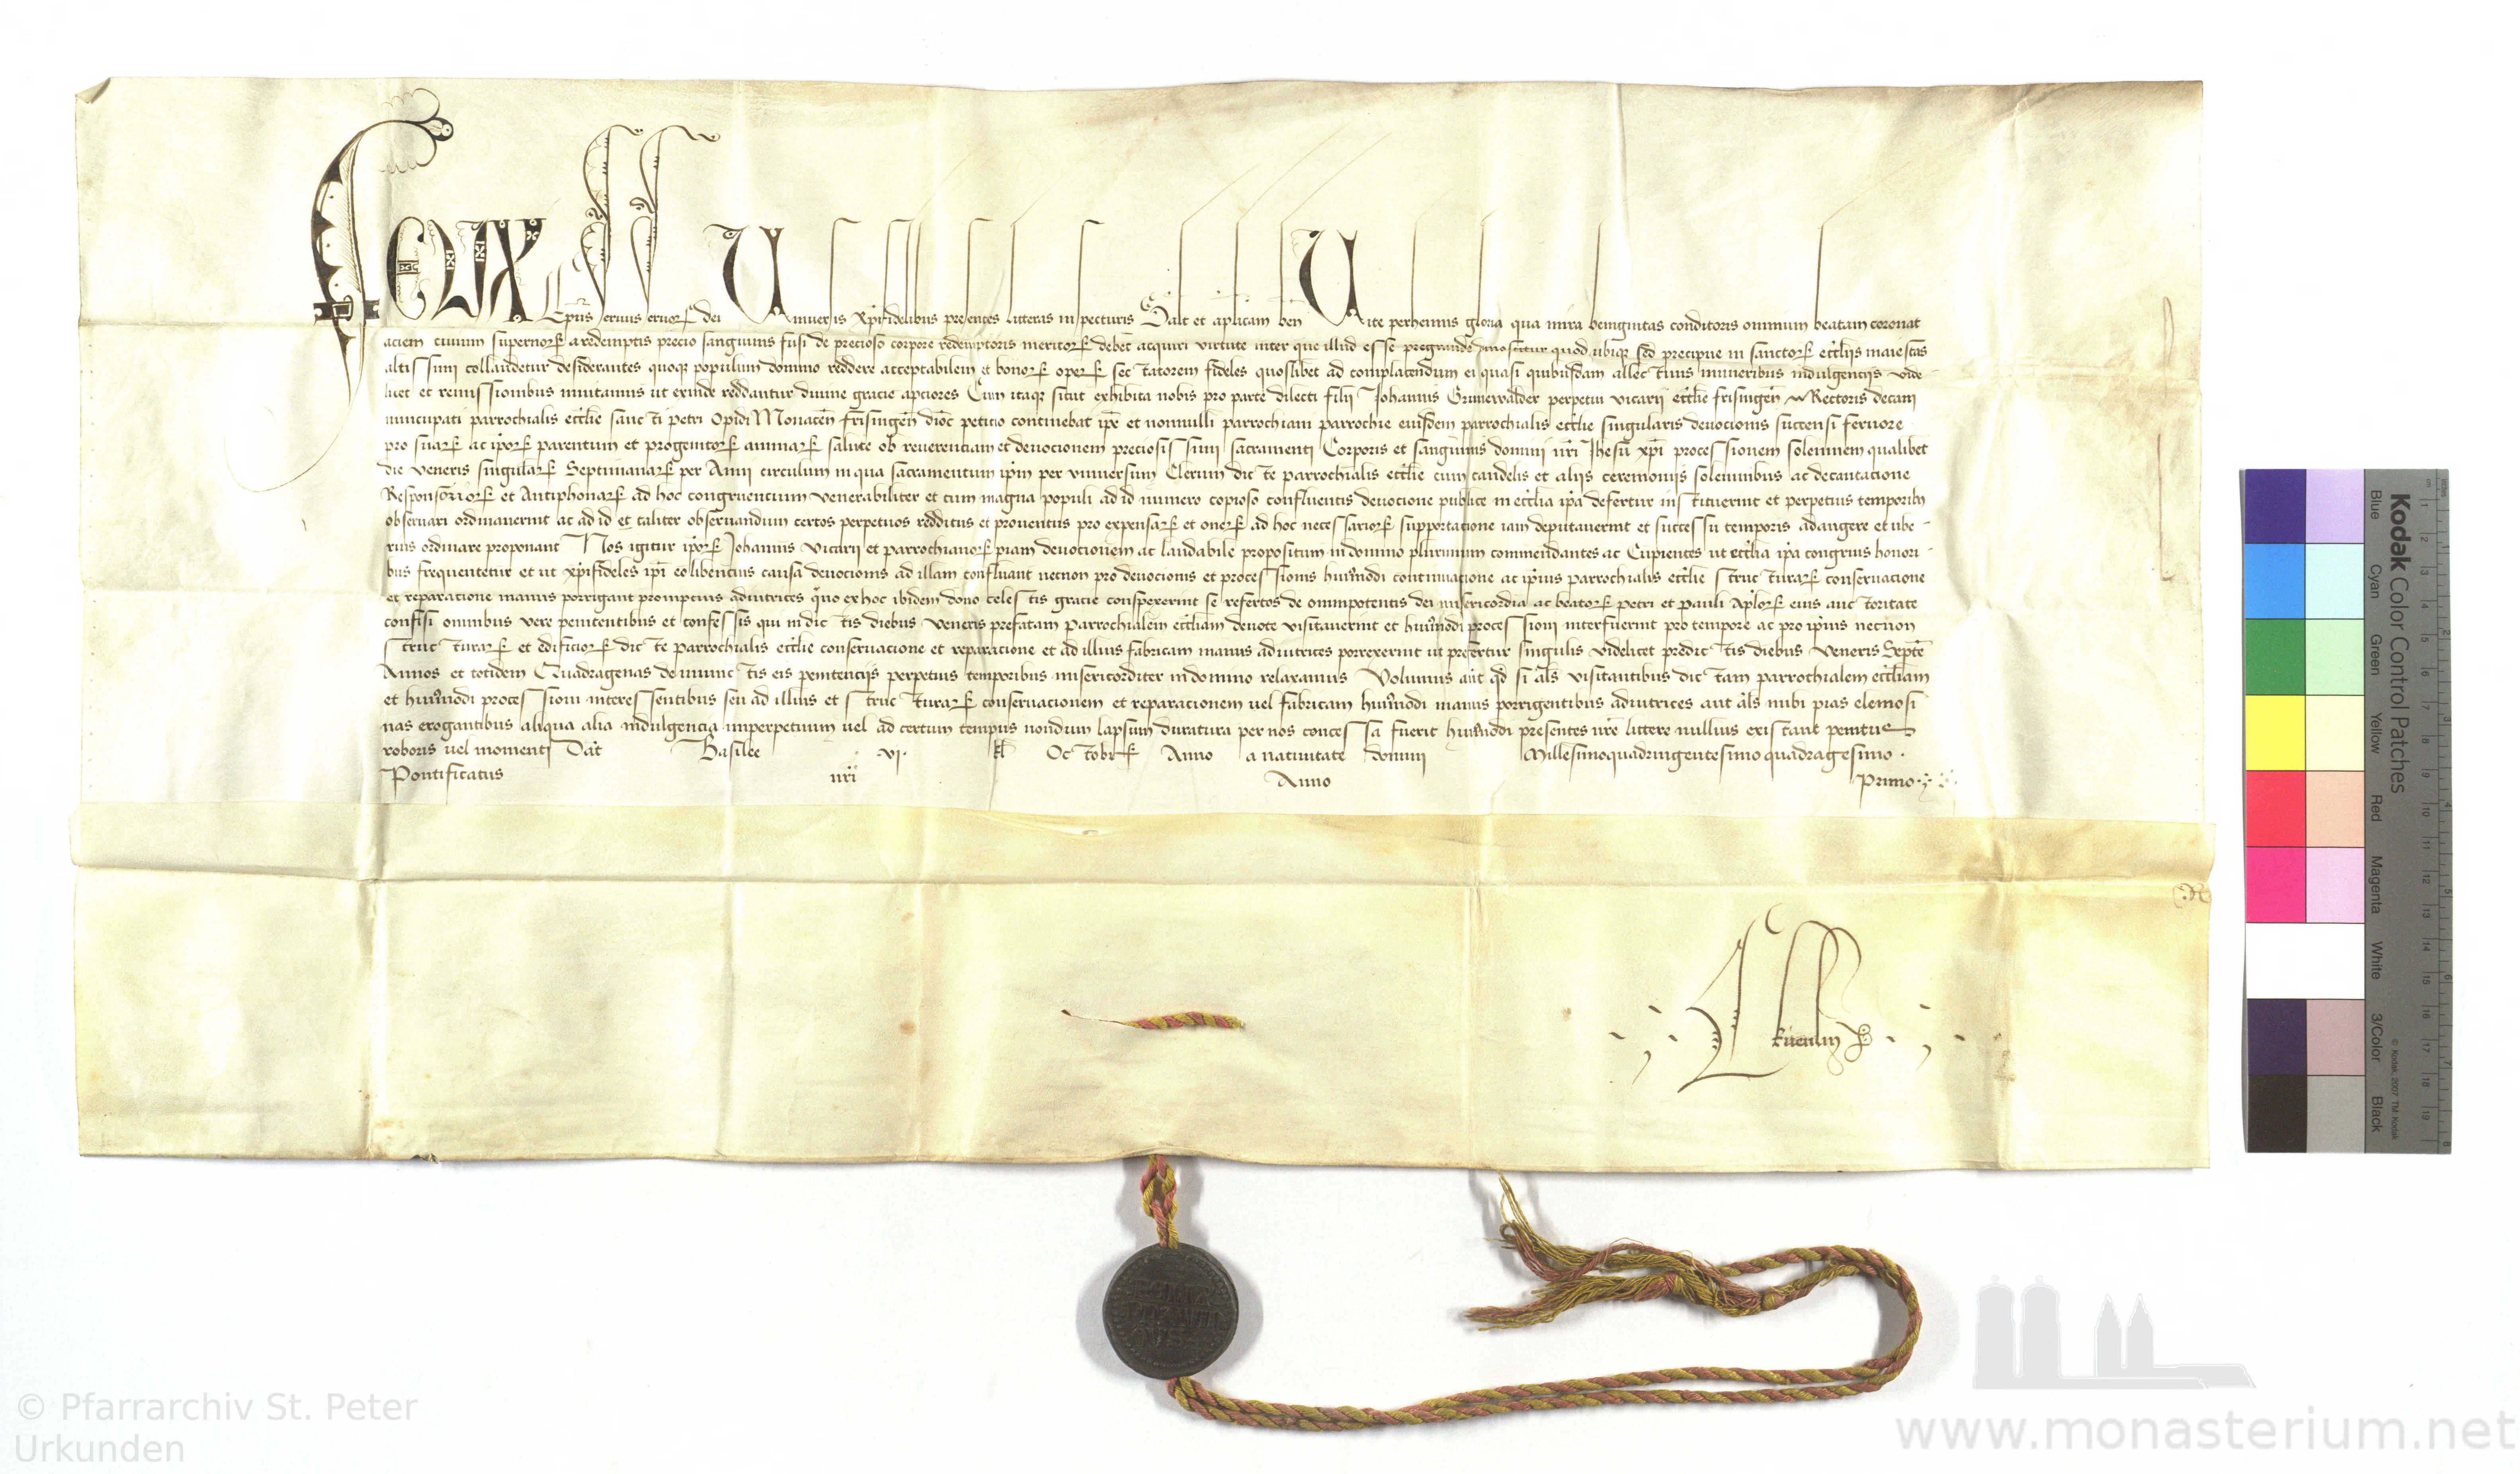 Felix Ep̄us seruus seruoꝝ dei Uniuersis xp̄ifidelibus presentes litteras inspecturis Salt̄ et aplicam ben̄ Uite perhennis gloria qua mira benignitas conditoris omnium beatam coronat
aciem ciuium supernoꝝ a redemptis precio sanguinis fusi de precioso corpore redemptoris meritoꝝ debet acquiri virtute inter que illud esse pregrande dinoscitur quod ubiqꝫ sed precipue in sanctoꝝ eccl̄iis maiestas
altissimi collaudetur desiderantes quoqꝫ populum domino reddere acceptabilem et bonoꝝ operꝝ sectatorem fideles quoslibet ad complacendum ei quasi quibusdam allectiuis muneribus indulgencijs vide-
licet et remissionibus inuitamus ut exinde reddantur diuine gracie apciores Cum itaqꝫ sicut exhibita nobis pro parte dilecti filii Johannis Grunewalder perpetui vicarii eccl̄ie frisingen̄ Rectoris decani
nuncupati parrochialis eccl̄ie sancti petri Opidi Monacen̄ frisingen̄ dioc̄ peticio continebat ip̄e et nonnulli parrochiani parrochie eiusdem parrochialis eccl̄ie singularis deuocionis succensi feruore
pro suaꝝ ac ip̄oꝝ parentum et progenitoꝝ animaꝝ salute ob reuerenciam et deuocionem preciosissimi sacramenti Corporis et sanguinis domini nr̄i Jhesu xp̄i processionem solennem qualibet
die veneris singulaꝝ Septimanaꝝ per Anni circulum in qua sacramentum ip̄m per vniuersum Clerum dicte parrochialis eccl̄ie cum candelis et aliis ceremoniis solennibus ac decantacione
Responsorioꝝ et Antiphonaꝝ ad hoc congruencium venerabiliter et cum magna populi ad id numero copioso confluentis deuocione publice in eccl̄ia ip̄a defertur instituerint et perpetuis temporibꝫ
obseruari ordinauerint ac ad id et taliter obseruandum certos perpetuos redditus et prouentus pro expensaꝝ et onerꝝ ad hoc necessarioꝝ supportacione iam deputauerint et successu temporis adaugere et ube-
rius ordinare proponant Nos igitur ip̄oꝝ Johannis vicarii et parrochianoꝝ piam deuocionem ac laudabile propositum in domino plurimum commendantes ac Cupientes ut eccl̄ia ip̄a congruis honori-
bus frequentetur et ut xp̄ifideles ip̄i eo libencius causa deuocionis ad illam confluant necnon pro deuocionis et processionis huiꝰmodi continuacione ac ip̄ius parrochialis eccl̄ie structuraꝝ conseruacione
et reparacione manus porrigant promptius adiutrices quo ex hoc ibidem dono celestis gracie conspexerint se refertos de omnipotentis dei misericordia ac beatoꝝ petri et pauli Ap̄loꝝ eius auctoritate
confisi omnibus vere penitentibus et confessis qui in dictis diebus veneris prefatam parrochialem eccl̄iam deuote visitauerint et huiꝰmodi processioni interfuerint pro tempore ac pro ip̄ius necnon
structuraꝝ et edificioꝝ dicte parrochialis eccl̄ie conseruacione et reparacione et ad illius fabricam manus adiutrices porrexerint ut prefertur singulis videlicet predictis diebus veneris Septē
Annos et totidem Quadragenas de iniunctis eis penitencijs perpetuis temporibus misericorditer in domino relaxamus Volumus aut̄ qd̄ si al̄s visitantibus dictam parrochialem eccl̄iam
et huiꝰmodi processioni interessentibus seu ad illius et structuraꝝ conseruacionem et reparacionem uel fabricam huiꝰmodi manus porrigentibus adiutrices aut al̄s inibi pias elemosi
nas erogantibus aliqua alia indulgencia imperpetuum uel ad certum tempus nondum lapsum duratura per nos concessa fuerit huiꝰmodi presentes nr̄e littere nullius existant penitus
roboris uel momenti Dat̄ Basilee vj. kl̄ Octobrꝝ Anno a natiuitate domini Millesimoquadringentesimo quadragesimo.
Pontificatus nr̄i Anno Primo.
Kodak Color Control Patches
Blue Cyan Green Yellow Red Magenta White 3/Color Black
© Kodak, 2007 TM: Kodak
© Pfarrarchiv St. Peter
Urkunden
www.monasterium.net